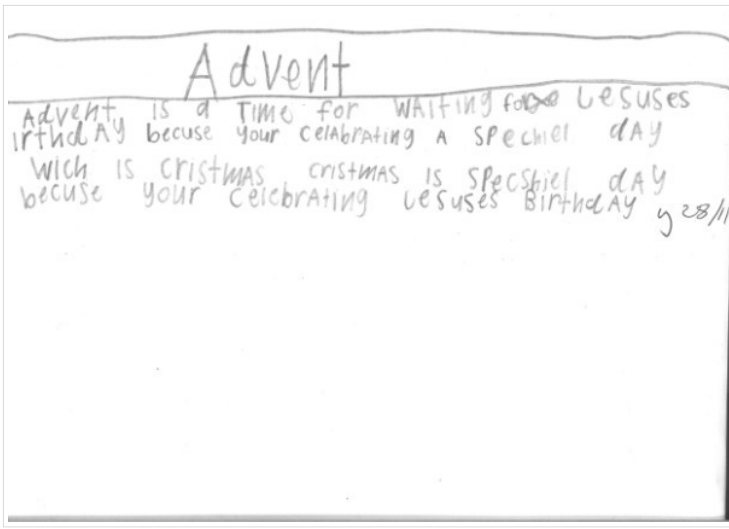 Advent
Advent is a Time for WAiTing for Lesuses
irthdAy becuse your celAbrAting A spechiel dAy
wich is cristmAs cristmAs is specshiel dAy
becuse your celebrAting Lesuses BirthdAy
y 28/11